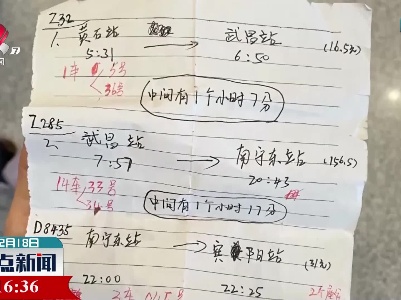 Z32
1、黄石站 → 武昌站 (16.5元)
5:31 6:50
1车 5号
36号
中间有1个小时7分
Z285
2、武昌站 → 南宁东站 (156.5)
7:57 20:43
14车 33号
34号
中间有1个小时17分
D8435 南宁东站 → 宾阳站 (31元)
22:00 22:25
2月18日
点新闻
16:36